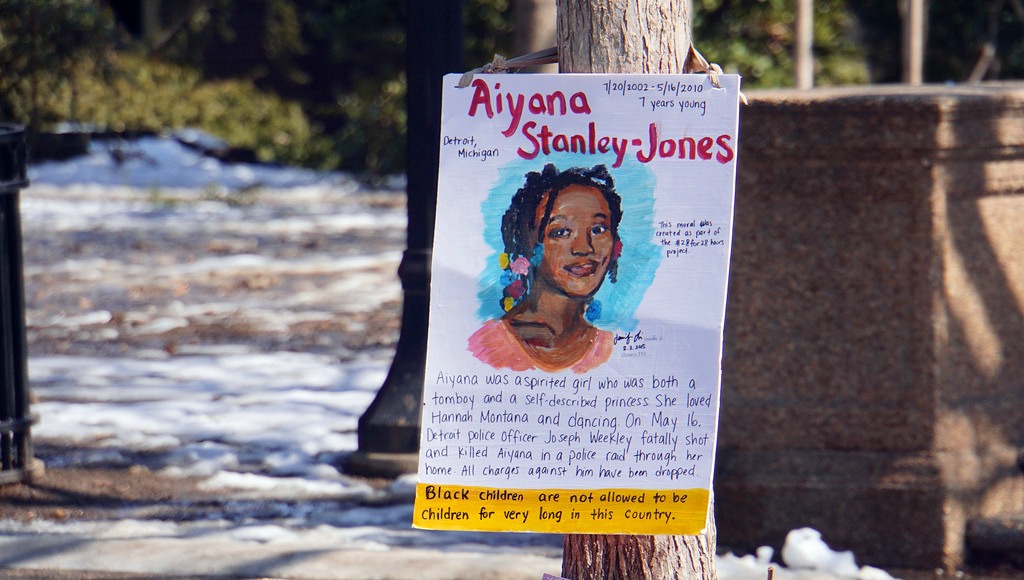 Aiyana
7/20/2002 - 5/16/2010
7 years young
Stanley-Jones
Detroit,
Michigan
This mural was
created as part of
the #28for28hours
project.
2.2.2015
Aiyana was a spirited girl who was both a
tomboy and a self-described princess. She loved
Hannah Montana and dancing. On May 16,
Detroit police officer Joseph Weekley fatally shot
and killed Aiyana in a police raid through her
home. All charges against him have been dropped.
Black children are not allowed to be
children for very long in this country.